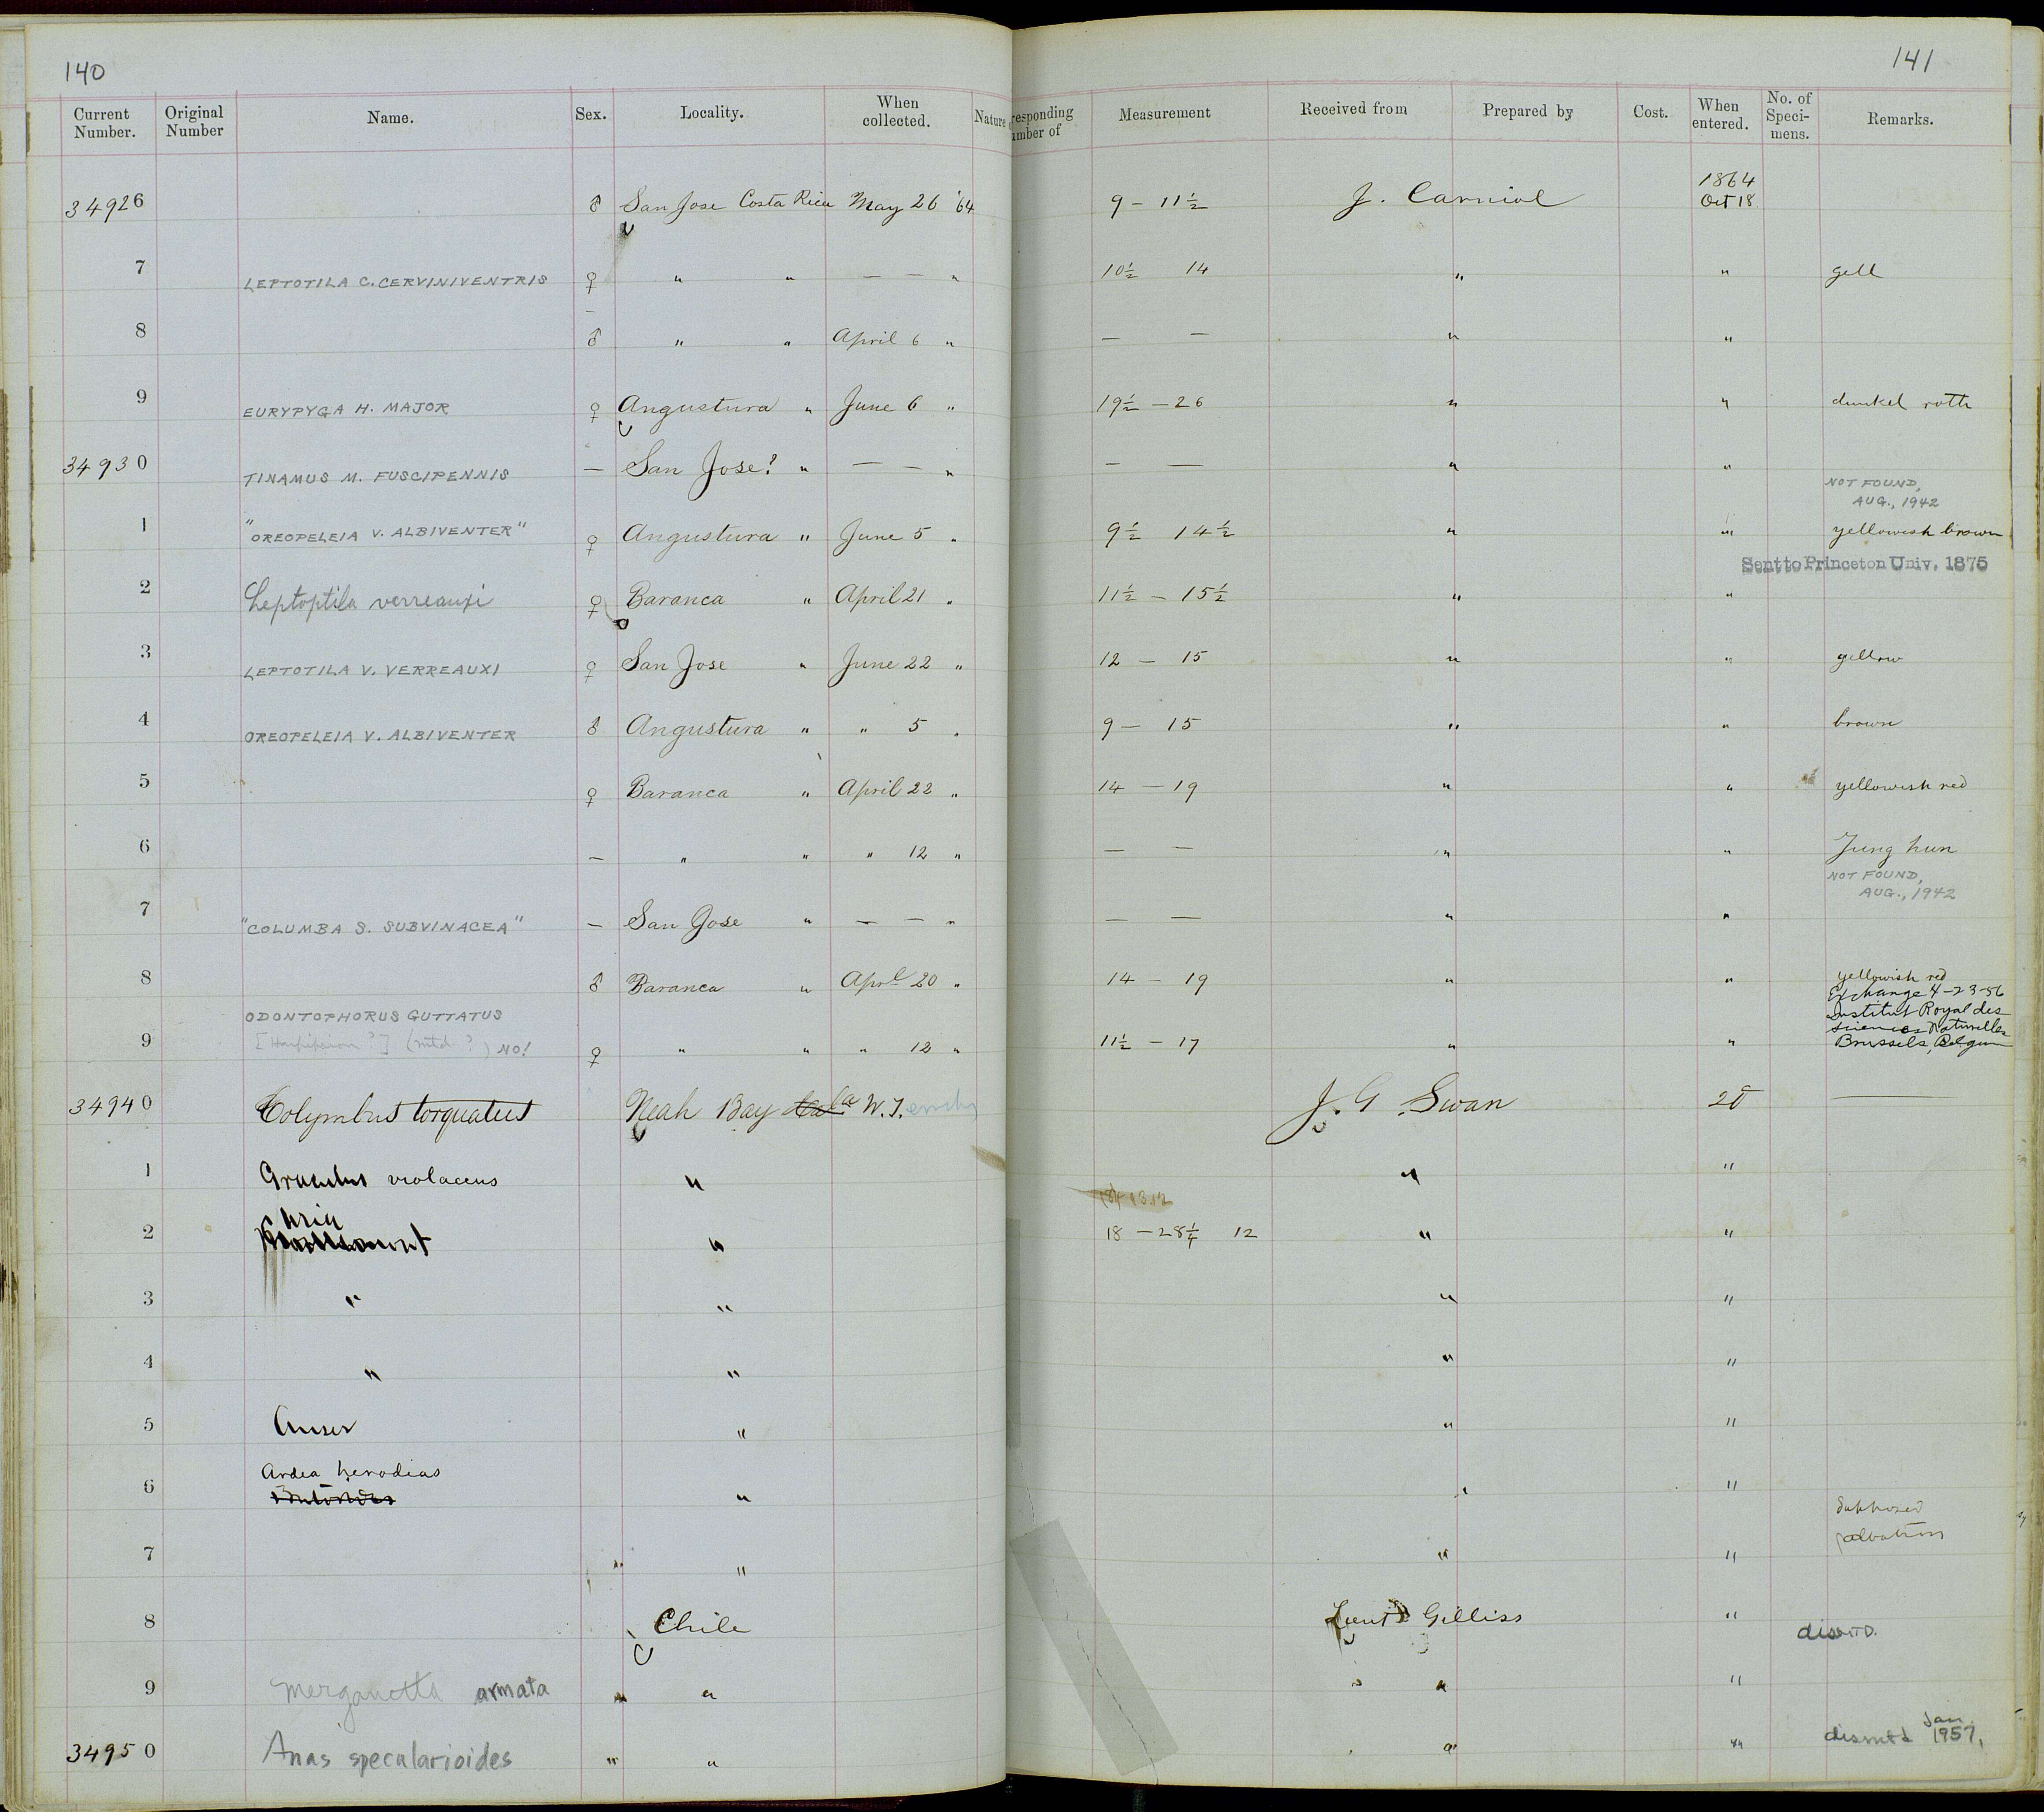 140
141
Current Number. Original Number Name. Sex. Locality. When collected. Nature responding umber of Measurement Received from Prepared by Cost. When entered. No. of Speci- mens. Remarks.
1864
34926 ♂ San Jose Costa Rica May 26 '64 9 – 11½ J. Carniol Oct 18
7 LEPTOTILA C. CERVINIVENTRIS ♀ " " — — " 10½ 14 " " gell
8 ♂ " " April 6 " — — " "
9 EURYPYGA H. MAJOR ♀ Angustura " June 6 " 19½ – 26 " " dunkel roth
34930 TINAMUS M. FUSCIPENNIS — San Jose? " — — " — — " "
NOT FOUND, AUG., 1942
1 "OREOPELEIA V. ALBIVENTER" ♀ Angustura " June 5 " 9½ 14½ " " yellowish brown
Sent to Princeton Univ. 1875
2 Leptoptila verreauxi ♀ Baranca " April 21 " 11½ – 15½ " "
3 LEPTOTILA V. VERREAUXI ♀ San Jose " June 22 " 12 – 15 " " yellow
4 OREOPELEIA V. ALBIVENTER ♂ Angustura " " 5 " 9 – 15 " " brown
5 ♀ Baranca " April 22 " 14 – 19 " " yellowish red
6 — " " " 12 " — — " " Jung hun
NOT FOUND, AUG., 1942
7 "COLUMBA S. SUBVINACEA" — San Jose " — — " — — " "
8 ♂ Baranca " Aprl 20 " 14 – 19 " " yellowish red
Exchange 4-23-56
Institut Royal des
Sciences Naturelles
Brussels, Belgium
ODONTOPHORUS GUTTATUS
9 NO! ♀ " " " 12 " 11½ – 17 " "
34940 Colymbus torquatus Neah Bay W.T. J. G. Swan 20 —
1 Graculus violaceus " " "
Uria
2 " 18 – 28¼ 12 " "
3 " " " "
4 " " " "
5 Anser " " "
Ardea herodias
6 " " "
Supposed
7 " " " "
8 Chile Lieut Gilliss "
9 Merganetta armata " " " " "
34950 Anas specularioides " " " " Jan 1957,